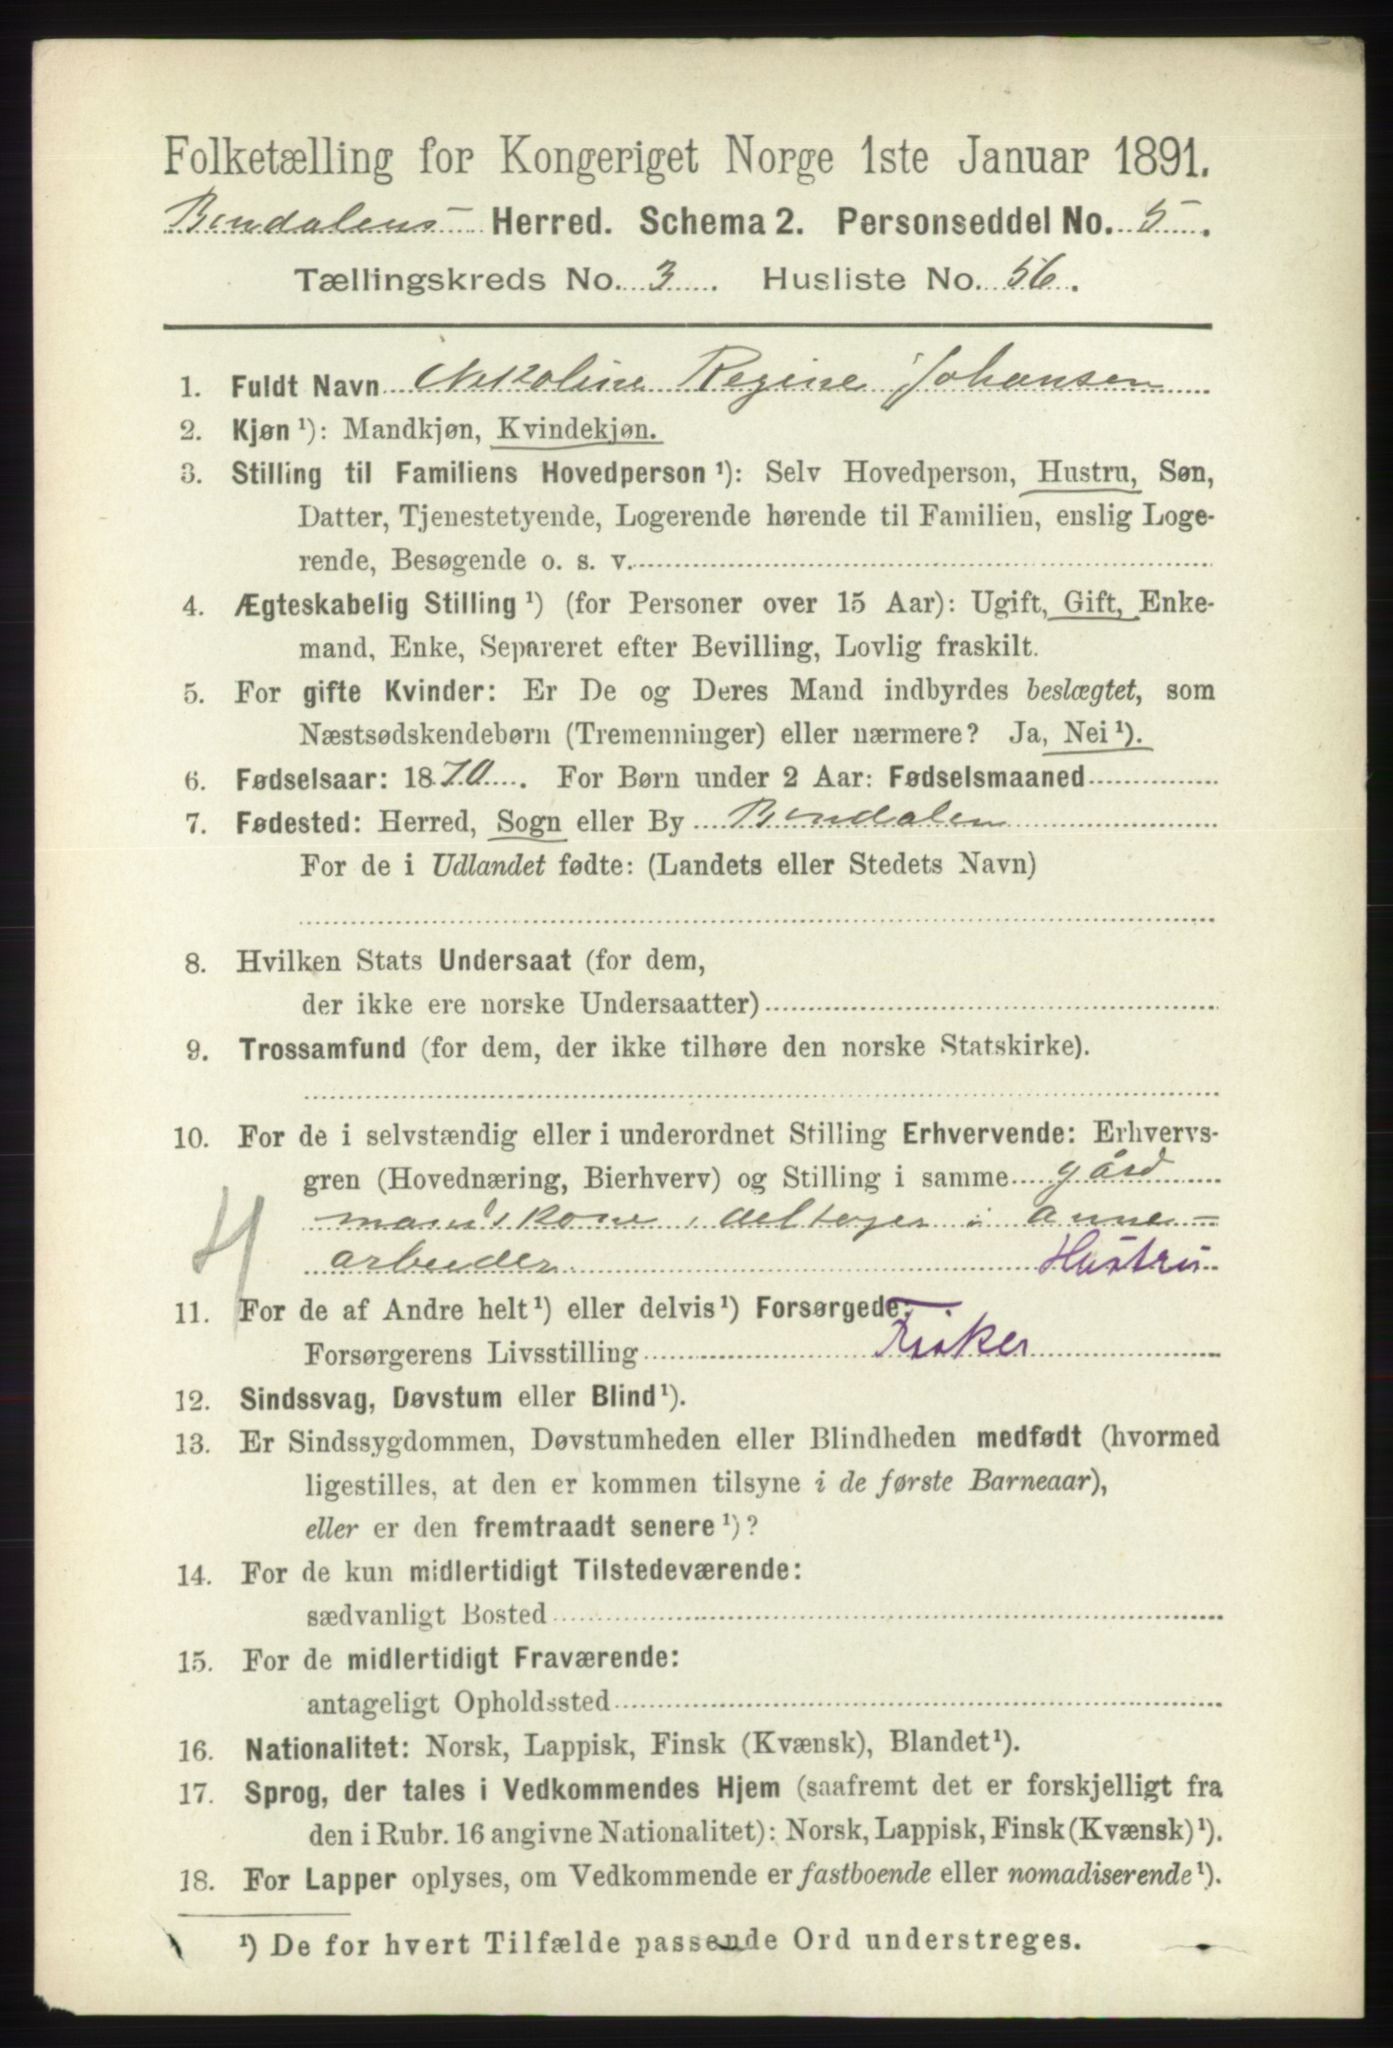 Folketælling for Kongeriget Norge 1ste Januar 1891.
Bindalens Herred. Schema 2. Personseddel No. 5.
Tællingskreds No. 3. Husliste No. 56.
1. Fuldt Navn Nikoline Regine Johansen
2. Kjøn ¹): Mandkjøn, Kvindekjøn.
3. Stilling til Familiens Hovedperson ¹): Selv Hovedperson, Hustru, Søn,
Datter, Tjenestetyende, Logerende hørende til Familien, enslig Loge-
rende, Besøgende o. s. v.
4. Ægteskabelig Stilling ¹) (for Personer over 15 Aar): Ugift, Gift, Enke-
mand, Enke, Separeret efter Bevilling, Lovlig fraskilt.
5. For gifte Kvinder: Er De og Deres Mand indbyrdes beslægtet, som
Næstsødskendebørn (Tremenninger) eller nærmere? Ja, Nei ¹).
6. Fødselsaar: 1870. For Børn under 2 Aar: Fødselsmaaned
7. Fødested: Herred, Sogn eller By Bindalen
For de i Udlandet fødte: (Landets eller Stedets Navn)
8. Hvilken Stats Undersaat (for dem,
der ikke ere norske Undersaatter)
9. Trossamfund (for dem, der ikke tilhøre den norske Statskirke).
10. For de i selvstændig eller i underordnet Stilling Erhvervende: Erhvervs-
gren (Hovednæring, Bierhverv) og Stilling i samme gård
mands kone, deltager i
arbeider Hustru
11. For de af Andre helt ¹) eller delvis ¹) Forsørgede:
Forsørgerens Livsstilling Fisker
12. Sindssvag, Døvstum eller Blind ¹).
13. Er Sindssygdommen, Døvstumheden eller Blindheden medfødt (hvormed
ligestilles, at den er kommen tilsyne i de første Barneaar),
eller er den fremtraadt senere ¹)?
14. For de kun midlertidigt Tilstedeværende:
sædvanligt Bosted
15. For de midlertidigt Fraværende:
antageligt Opholdssted
16. Nationalitet: Norsk, Lappisk, Finsk (Kvænsk), Blandet ¹).
17. Sprog, der tales i Vedkommendes Hjem (saafremt det er forskjelligt fra
den i Rubr. 16 angivne Nationalitet): Norsk, Lappisk, Finsk (Kvænsk) ¹).
18. For Lapper oplyses, om Vedkommende er fastboende eller nomadiserende ¹).
¹) De for hvert Tilfælde passende Ord understreges.